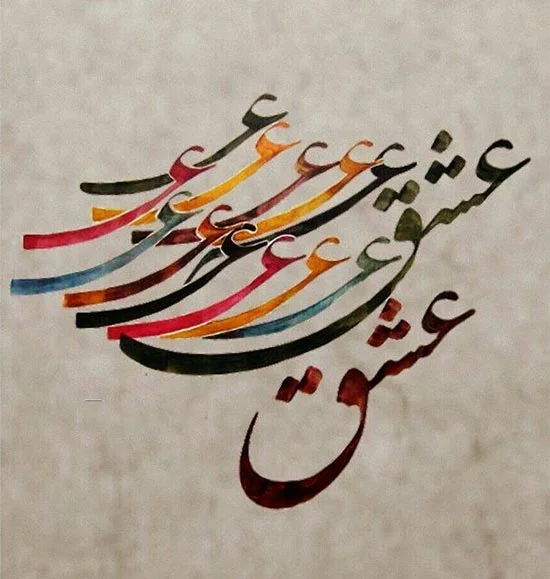 عشق
عشق